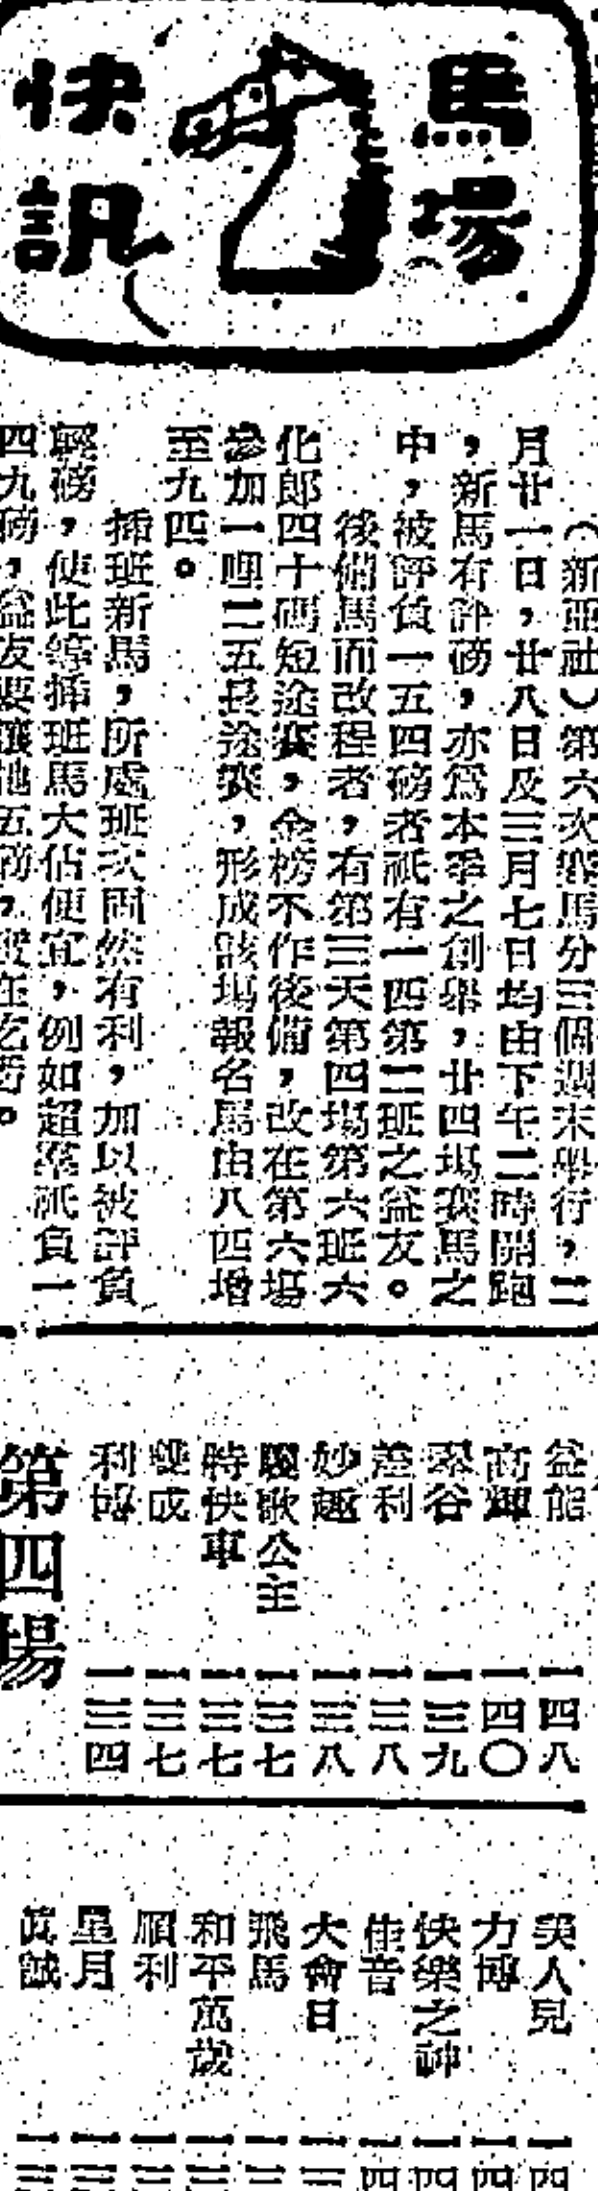 馬場
快訊
（新亞社）第六次賽馬分三個週末舉行，二
月廿一日，廿八日及三月七日均由下午二時開跑
，新馬有評磅，亦爲本季之創舉，廿四場賽馬之
中，被評負一五四磅者祇有一四第二班之益友。
後備馬而改程者，有第三天第四場第六班六
化郎四十碼短途賽，金榜不作後備，改在第六場
參加一哩二五長途賽，形成該場報名馬由八匹增
至九匹。
插班新馬，所處班次固然有利，加以被評負
輕磅，使此等插班馬大佔便宜，例如超羣祇負一
四九磅，益友要讓他五磅，實在吃虧。
益能 一四八
高輝 一四〇
翠谷 一三九
差利 一三八
妙趣 一三八
驪歌公主 一三七
特快車 一三七
雙成 一三七
利博 一三四
第四場
美人兒 一四
力博 一四
快樂之神 一四
佳音 一四
大會日 一三
飛馬 一三
和平萬歲 一三
順利 一三
星月 一三
眞誠 一三